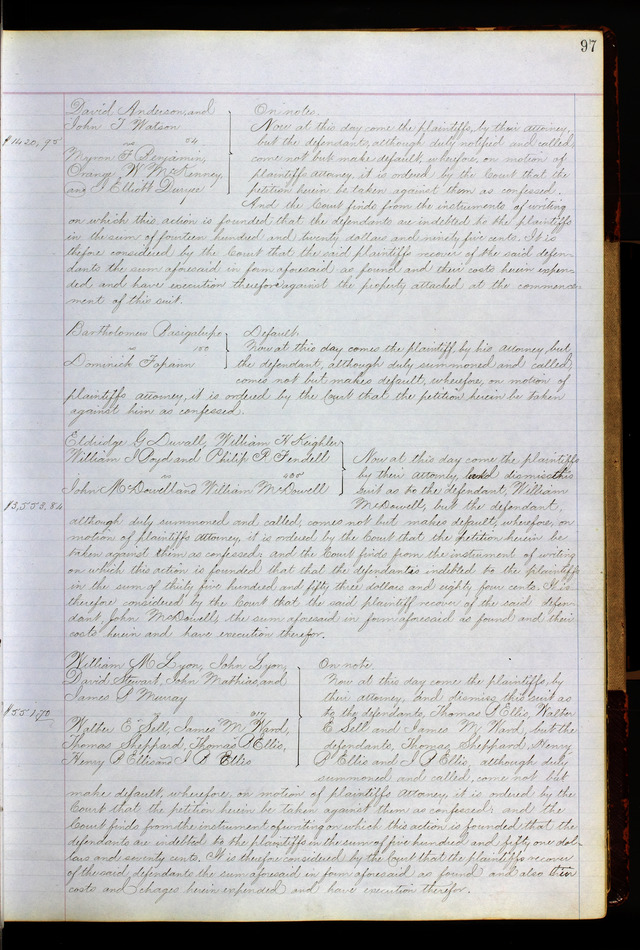 97
David Anderson, and
John T Watson
vs 34
Myron F Benjamin,
Orange W McKenney,
and J Elliott Duryee
$1420,95
On notes.
Now at this day come the plaintiffs, by their attorney,
but the defendants, although duly notified and called,
come not but make default, wherefore, on motion of
plaintiffs attorney, it is ordered by the Court that the
petition herein be taken against them as confessed.
And the Court finds from the instruments of writing
on which this action is founded that the defendants are indebted to the plaintiffs
in the sum of fourteen hundred and twenty dollars and ninety five cents. It is
thefore considered by the Court that the said plaintiffs recover of the said defen-
dants the sum aforesaid in form aforesaid as found and their costs herein expen-
ded and have execution therefor against the property attached at the commence-
ment of this suit.
Bartholomew Basigalupo
vs 150
Dominick Fopiain
Default
Now at this day comes the plaintiff by his attorney, but
the defendant, although duly summoned and called,
comes not but makes default, wherefore, on motion of
plaintiffs attorney, it is ordered by the Court that the petition herein be taken
against him as confessed.
Eldridge G Duvall, William H Keighler
William J Boyd and Philip R Fendell
vs 400
John McDowell and William McDowell
$3,553,84
Now at this day come the plaintiffs
by their attorney, and dismiss this
suit as to the defendant, William
McDowell, but the defendant,
although duly summoned and called, comes not but makes default, wherefore, on
motion of plaintiffs attorney, it is ordered by the Court that the petition herein be
taken against them as confessed: and the Court finds from the instrument of writing
on which this action is founded that that the defendant is indebted to the plaintiffs
in the sum of thirty five hundred and fifty three dollars and eighty four cents. It is
therefore considered by the Court that the said plaintiff recover of the said defen-
dant, John McDowell, the sum aforesaid in form aforesaid as found and their
costs herein and have execution therefor.
William M Lyon, John Lyon,
David Stewart, John Mathias, and
James S Murray
vs
Walter E Sell, James M Ward,
Thomas Sheppard, Thomas P Ellis,
Henry P Ellis and J P Ellis
$551.70
On note.
Now at this day come the plaintiffs by
their attorney, and dismiss this suit as
to the defendants, Thomas P Ellis, Walter
E Sell and James M Ward, but the
defendants, Thomas Sheppard, Henry
P Ellis and J P Ellis, although duly
summoned and called, come not but
make default, wherefore, on motion of plaintiffs attorney, it is ordered by the
Court that the petition herein be taken against them as confessed: and the
Court finds from the instrument of writing on which this action is founded that the
defendants are indebted to the plaintiffs in the sum of five hundred and fifty one dol-
lars and seventy cents. It is therefore considered by the Court that the plaintiffs recover
of the said defendants the sum aforesaid in form aforesaid as found and also their
costs and chages herein expended and have execution therefor.